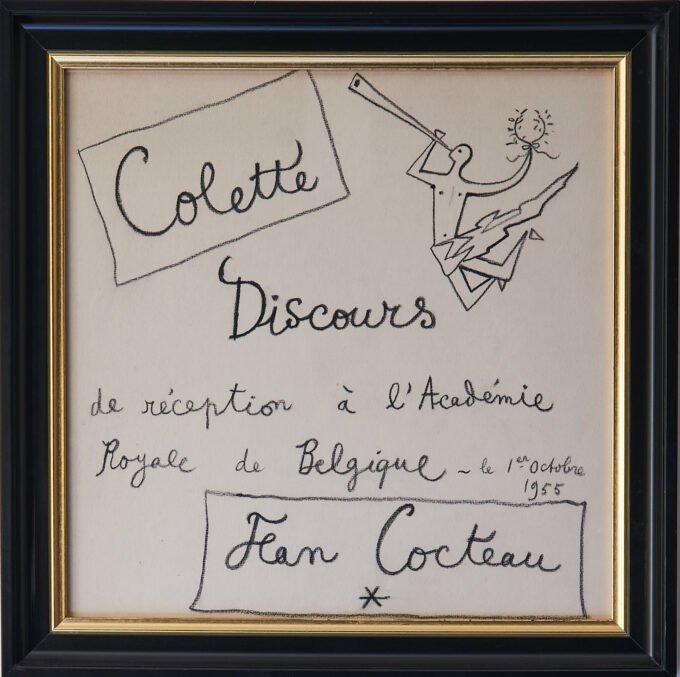 Colette
Discours
de réception à l'Académie
Royale de Belgique ~ le 1er Octobre
1955
Jean Cocteau
*